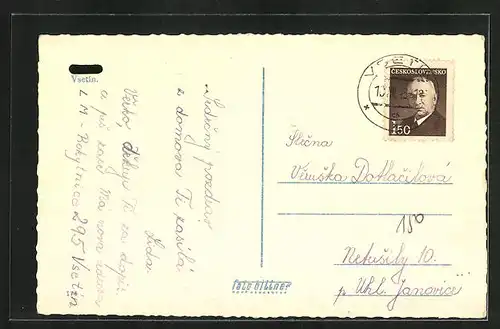 Vsetín.
Srdečný pozdrav
z domova Ti zasílá
Lída
Věrko, děkuji Ti za dopis.
a piš zase. Má nová adresa
L M - Rokytnice 295 Vsetín
VSETÍN
ČESKOSLOVENSKO
1.50
Slečna
Věruška Dotlačilová
150
Netušily 10.
p Uhl. Janovice
foto bittner